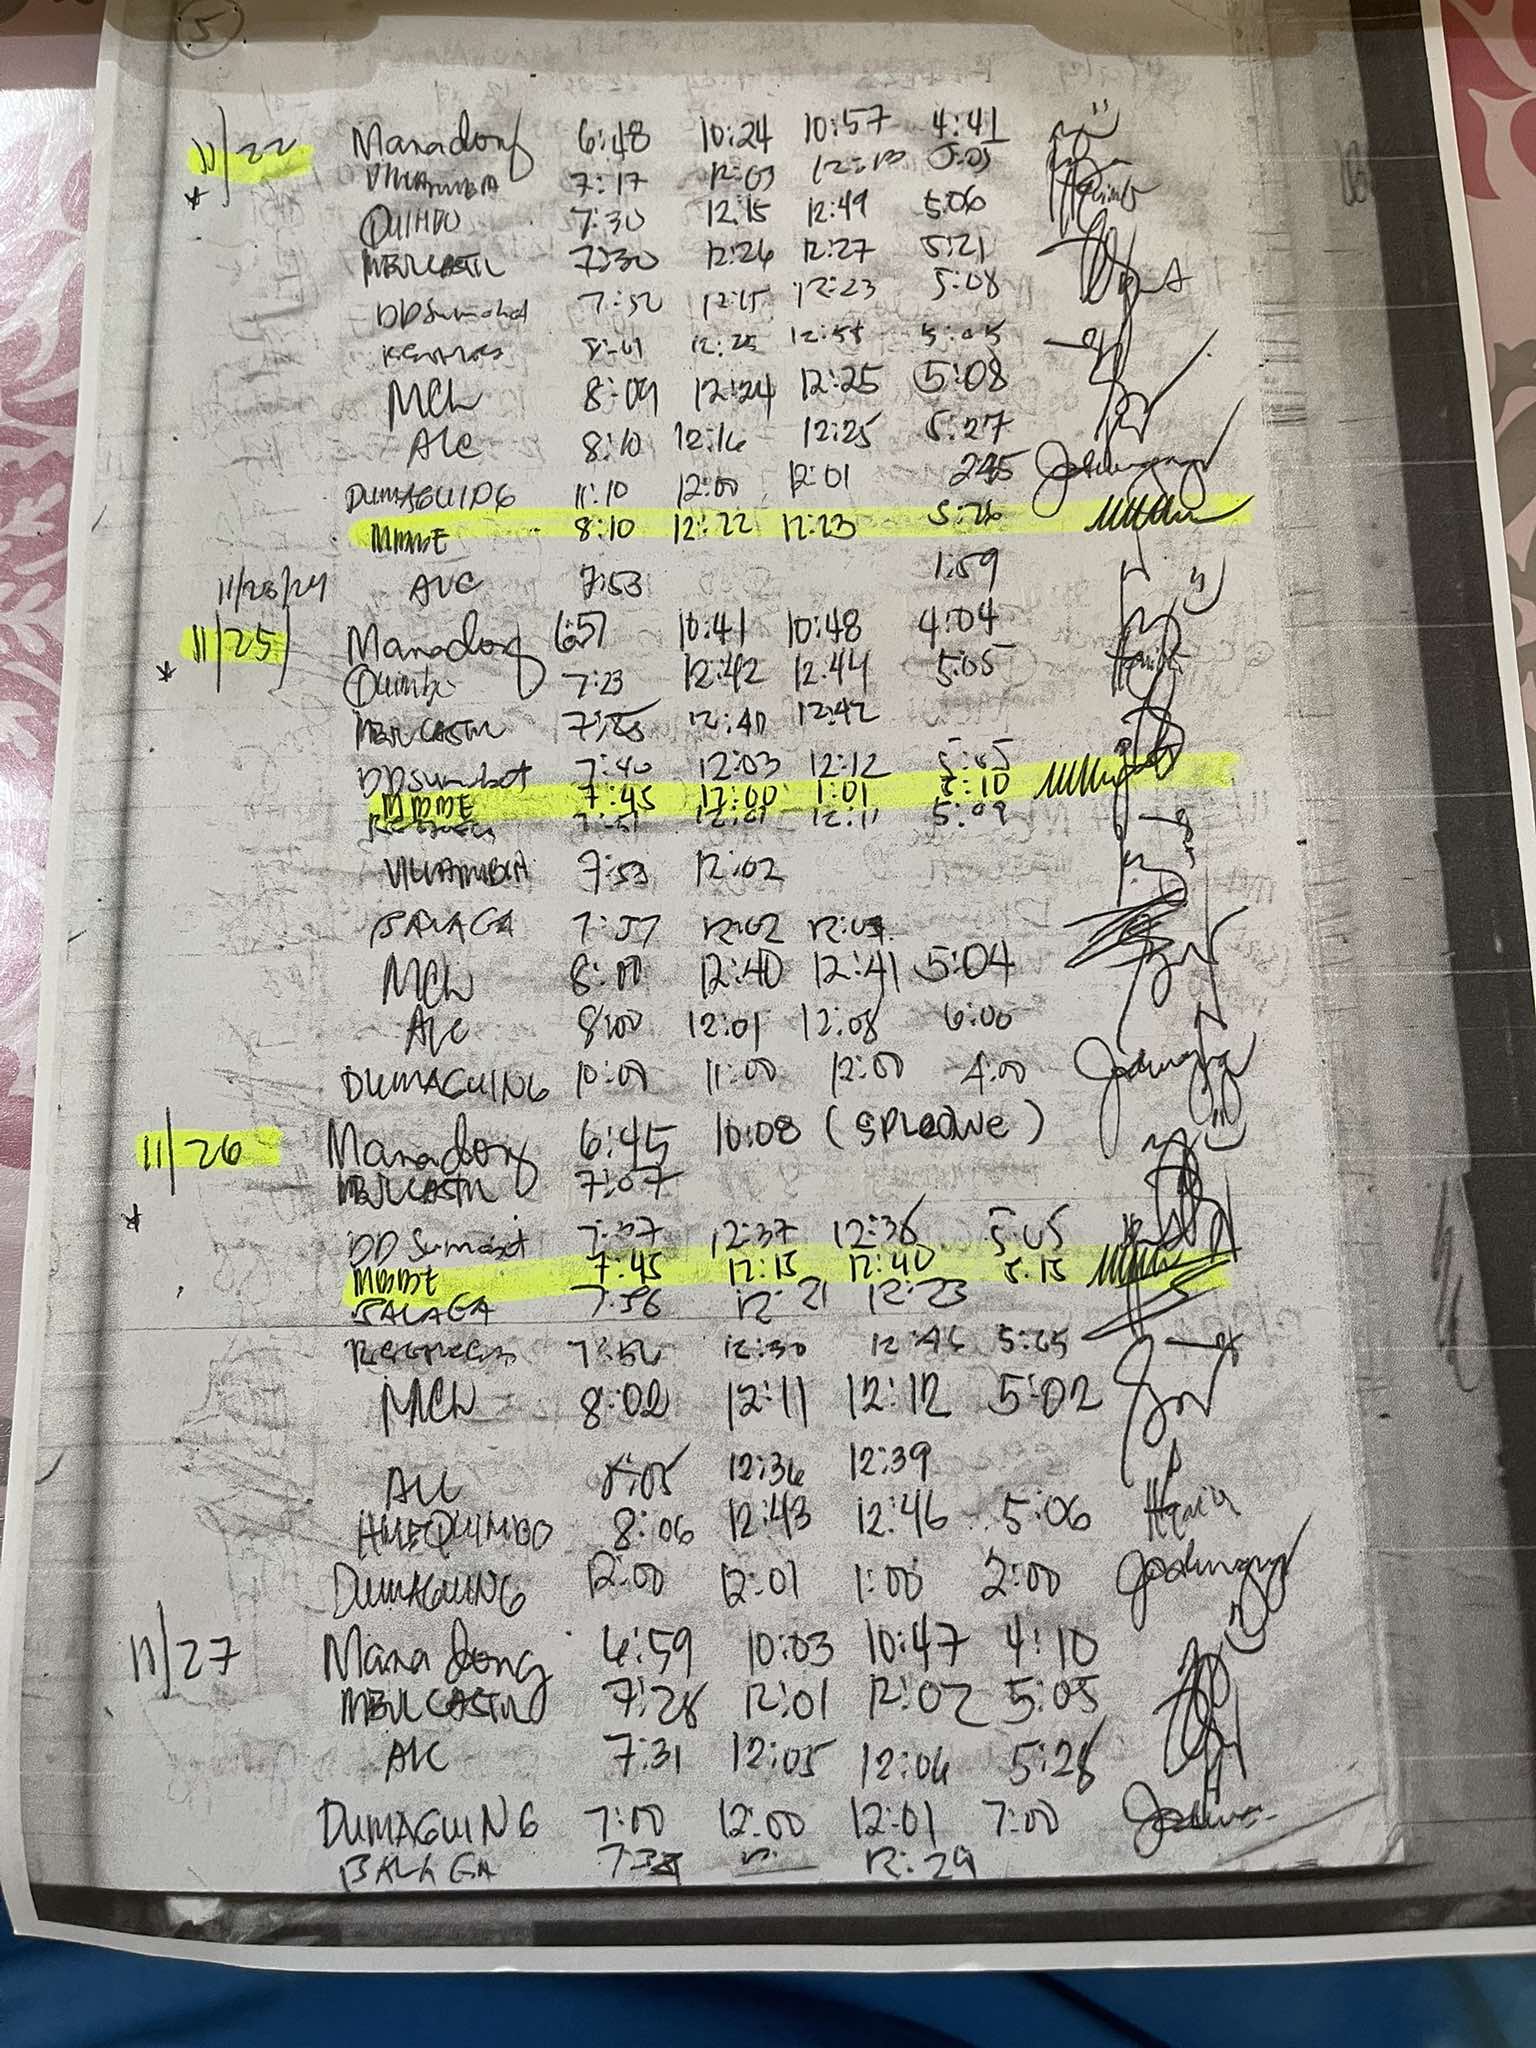 5
11/22 Manadong 6:48 10:24 10:57 4:41
VILLAMBIA 7:17 12:03 12:13 5:05
QUIMBO 7:30 12:15 12:49 5:06
7:30 12:26 12:27 5:21
DDSumabat 7:52 12:15 12:23 5:08
12:25 12:58 5:05
MCL 8:09 12:24 12:25 5:08
ALC 8:10 12:16 12:25 5:27
DUMAGUING 11:10 12:00 12:01
MBBE 8:10 12:22 12:23 5:26
11/23/24 ALC 7:53 1:59
11/25 Manadong 6:57 10:41 10:48 4:04
Quimbo 7:23 12:42 12:44 5:05
12:40 12:42
DDSumabat 7:40 12:03 12:12 5:05
MBBE 7:45 12:00 1:01 5:10
7:51 12:01 12:11 5:09
VILLAMBIA 7:53 12:02
BALAGA 7:57 12:02
MCL 8:00 12:40 12:41 5:04
ALC 8:00 12:01 12:08 6:00
DUMAGUING 10:00 11:00 12:00 4:00
11/26 Manadong 6:45 10:08 (SPLeave)
7:07
DD Sumabat 7:37 12:37 12:38 5:05
MBBE 7:45 12:15 12:40 5:15
BALAGA 7:56 12:21 12:23
12:30 12:46
MCL 8:02 12:11 12:12 5:02
ALC 8:05 12:36 12:39
HMEQUIMBO 8:06 12:43 12:46 5:06
DUMAGUING 12:00 12:01 1:00 2:00
11/27 Manadong 6:59 10:03 10:47 4:10
7:28 12:01 12:02 5:05
ALC 7:31 12:05 12:06 5:28
DUMAGUING 7:00 12:00 12:01 7:00
BALAGA 12:29